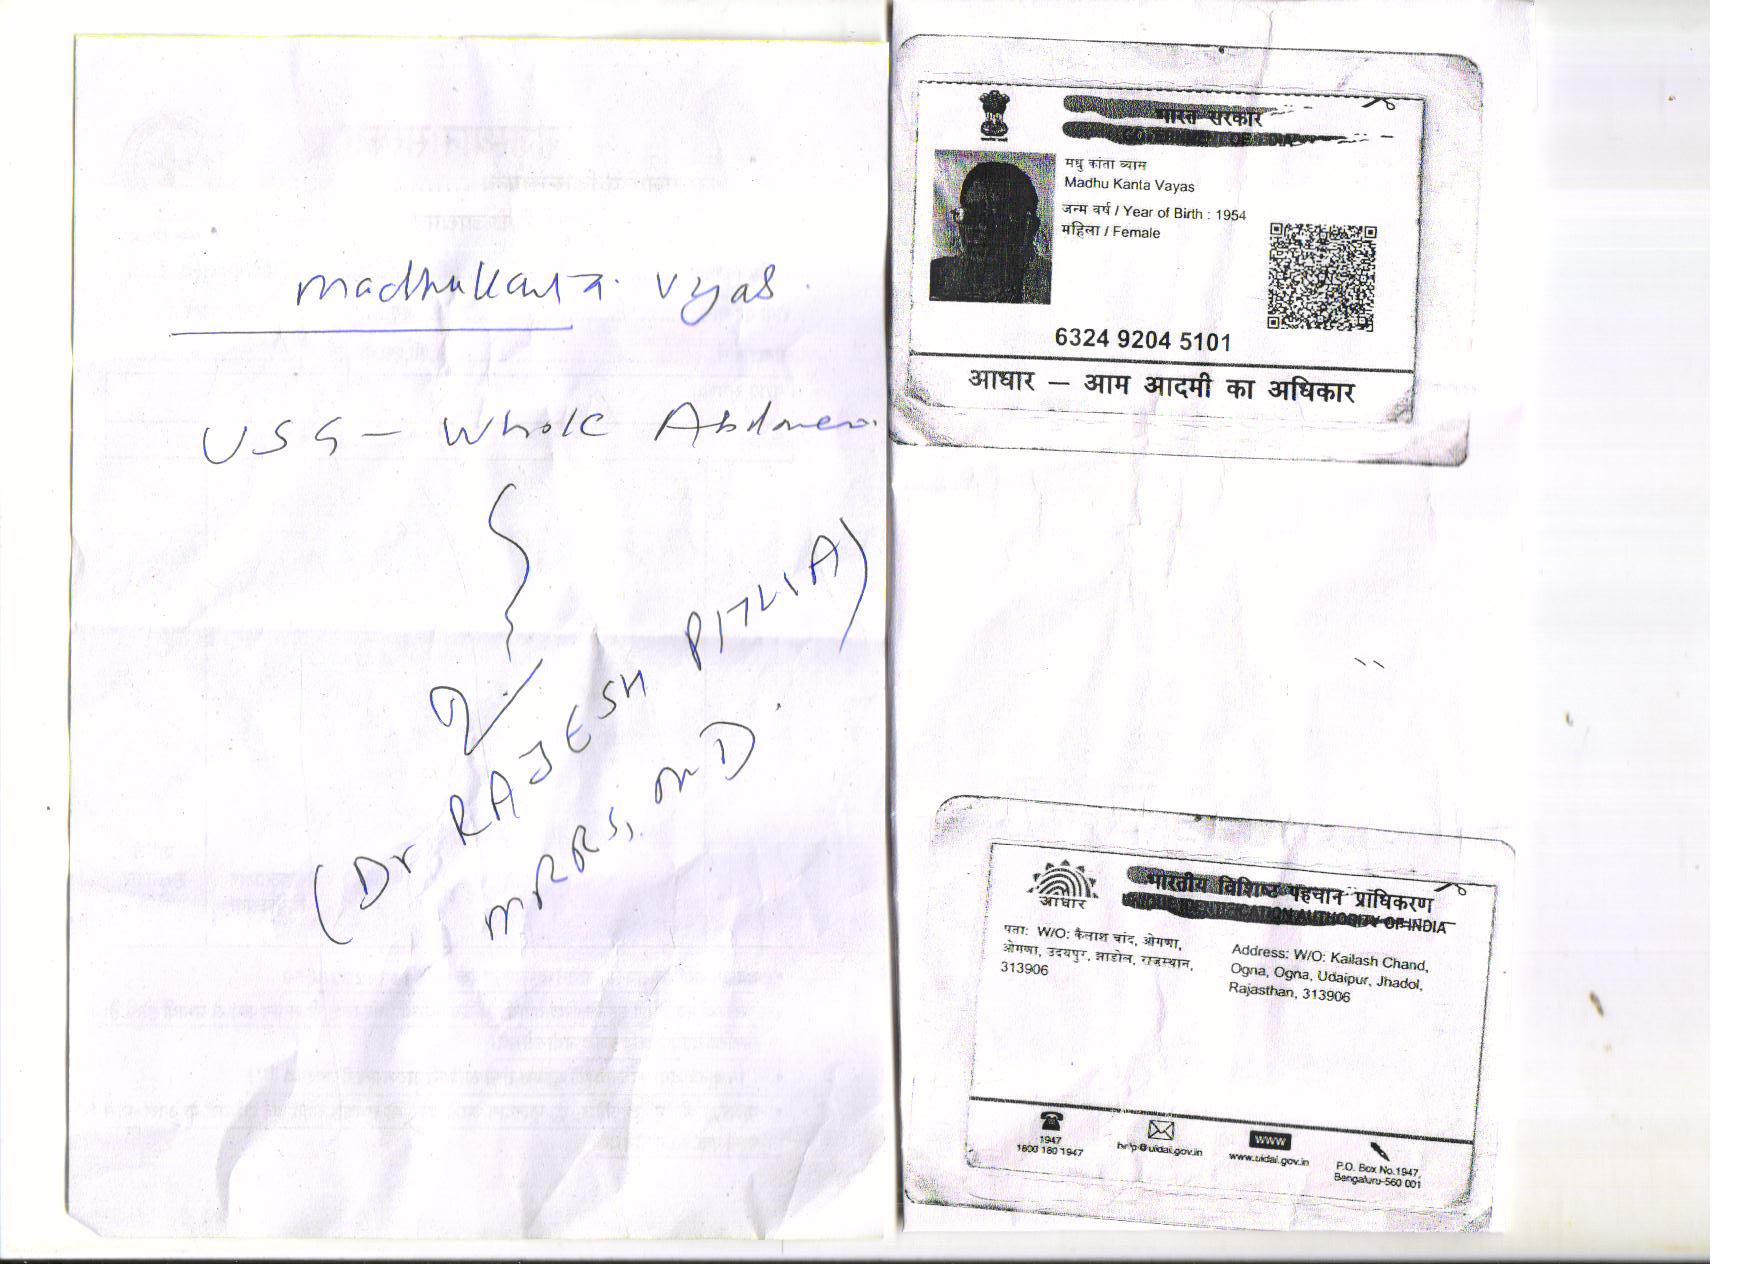 Madhukanta Vyas
USG - Whole Abdomen
(Dr RAJESH PITLIA)
MBBS, MD
भारत सरकार
GOVERNMENT OF INDIA
मधु कांता व्यास
Madhu Kanta Vayas
जन्म वर्ष / Year of Birth : 1954
महिला / Female
6324 9204 5101
आधार – आम आदमी का अधिकार
आधार
भारतीय विशिष्ट पहचान प्राधिकरण
UNIQUE IDENTIFICATION AUTHORITY OF INDIA
पता: W/O: कैलाश चांद, ओगणा,
ओगणा, उदयपुर, झाडोल, राजस्थान,
313906
Address: W/O: Kailash Chand,
Ogna, Ogna, Udaipur, Jhadol,
Rajasthan, 313906
1947
1800 180 1947
help@uidai.gov.in
www
www.uidai.gov.in
P.O. Box No.1947,
Bengaluru-560 001